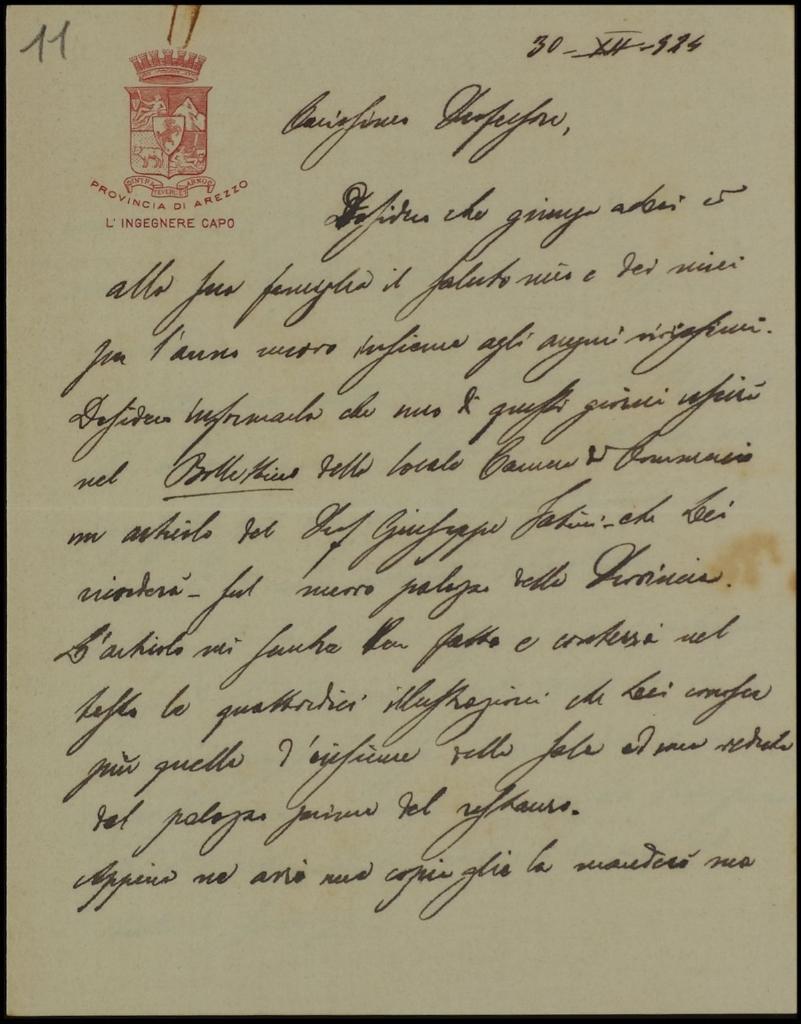 11
30-XII-924
PROVINCIA DI AREZZO
L'INGEGNERE CAPO
Carissimo Professore,
Desidero che giunga a Lei e
alla sua famiglia il saluto mio e dei miei
per l'anno nuovo insieme agli auguri vivissimi.
Desidero informarla che uno di questi giorni uscirà
nel Bollettino della locale Camera di Commercio
un articolo del Prof Giuseppe Fatini - che Lei
ricorderà - sul nuovo palazzo della Provincia.
L'articolo mi sembra ben fatto e conterrà nel
testo le quattordici illustrazioni che Lei conosce
più quella d'insieme della sala ed una veduta
del palazzo prima del restauro.
Appena ne avrò una copia glie la manderò ma